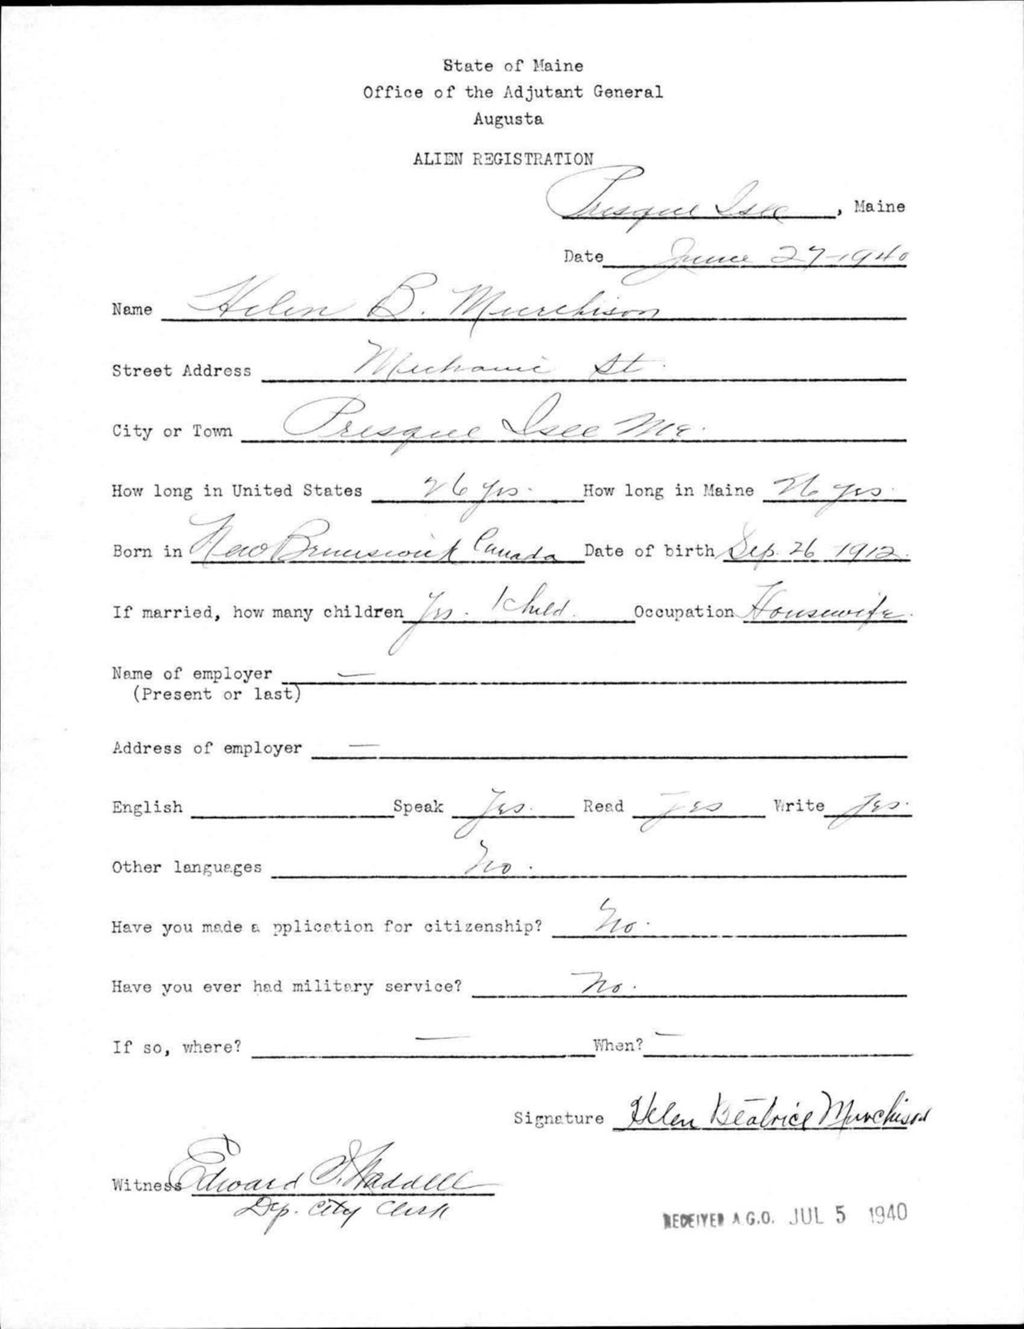 State of Maine
Office of the Adjutant General
Augusta
ALIEN REGISTRATION
Presque Isle, Maine
Date June 27-1940
Name Helen B. Murchison
Street Address Mechanic St.
City or Town Presque Isle Me.
How long in United States 26 yrs. How long in Maine 26 yrs.
Born in New Brunswick Canada Date of birth Sep. 26 1912.
If married, how many children Yes. 1 Child. Occupation Housewife.
Name of employer —
(Present or last)
Address of employer —
English Speak Yes. Read Yes Write Yes.
Other languages No.
Have you made a pplication for citizenship? No.
Have you ever had military service? No.
If so, where? — When? —
Signature Helen Beatrice Murchison
Witness Edward I. Waddell
Dep. City Clerk
RECEIVED A.G.O. JUL 5 1940